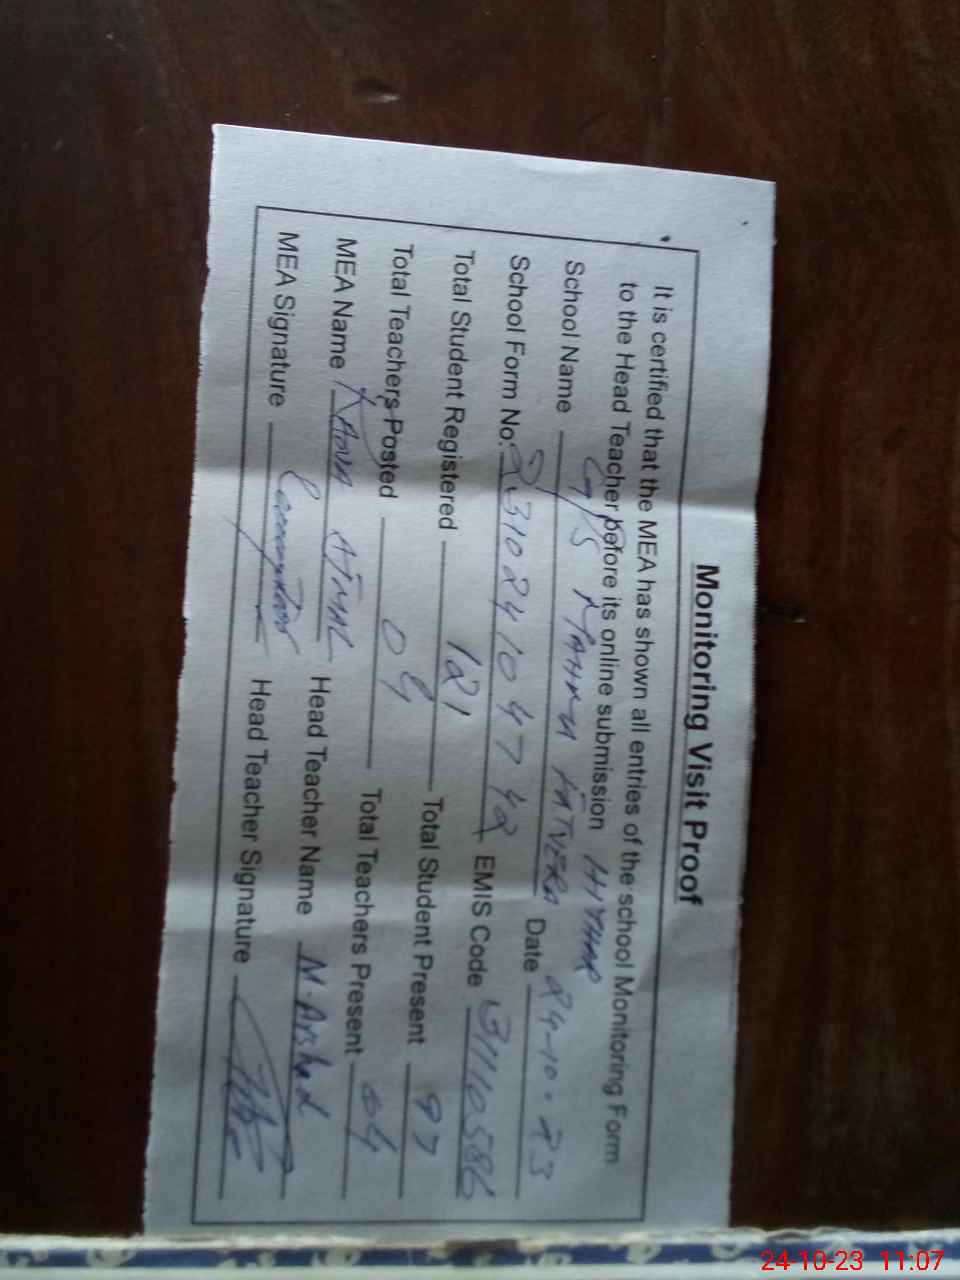 Monitoring Visit Proof
It is certified that the MEA has shown all entries of the school Monitoring Form
to the Head Teacher before its online submission HITHAR
School Name G/S MAHMU FATVERA Date 24-10-23
School Form No. 231024104742 EMIS Code 31110586
Total Student Registered 121 Total Student Present 97
Total Teachers Posted 04 Total Teachers Present 04
MEA Name RANA AJMAL Head Teacher Name M. Arshad
MEA Signature Head Teacher Signature
24-10-23 11:07